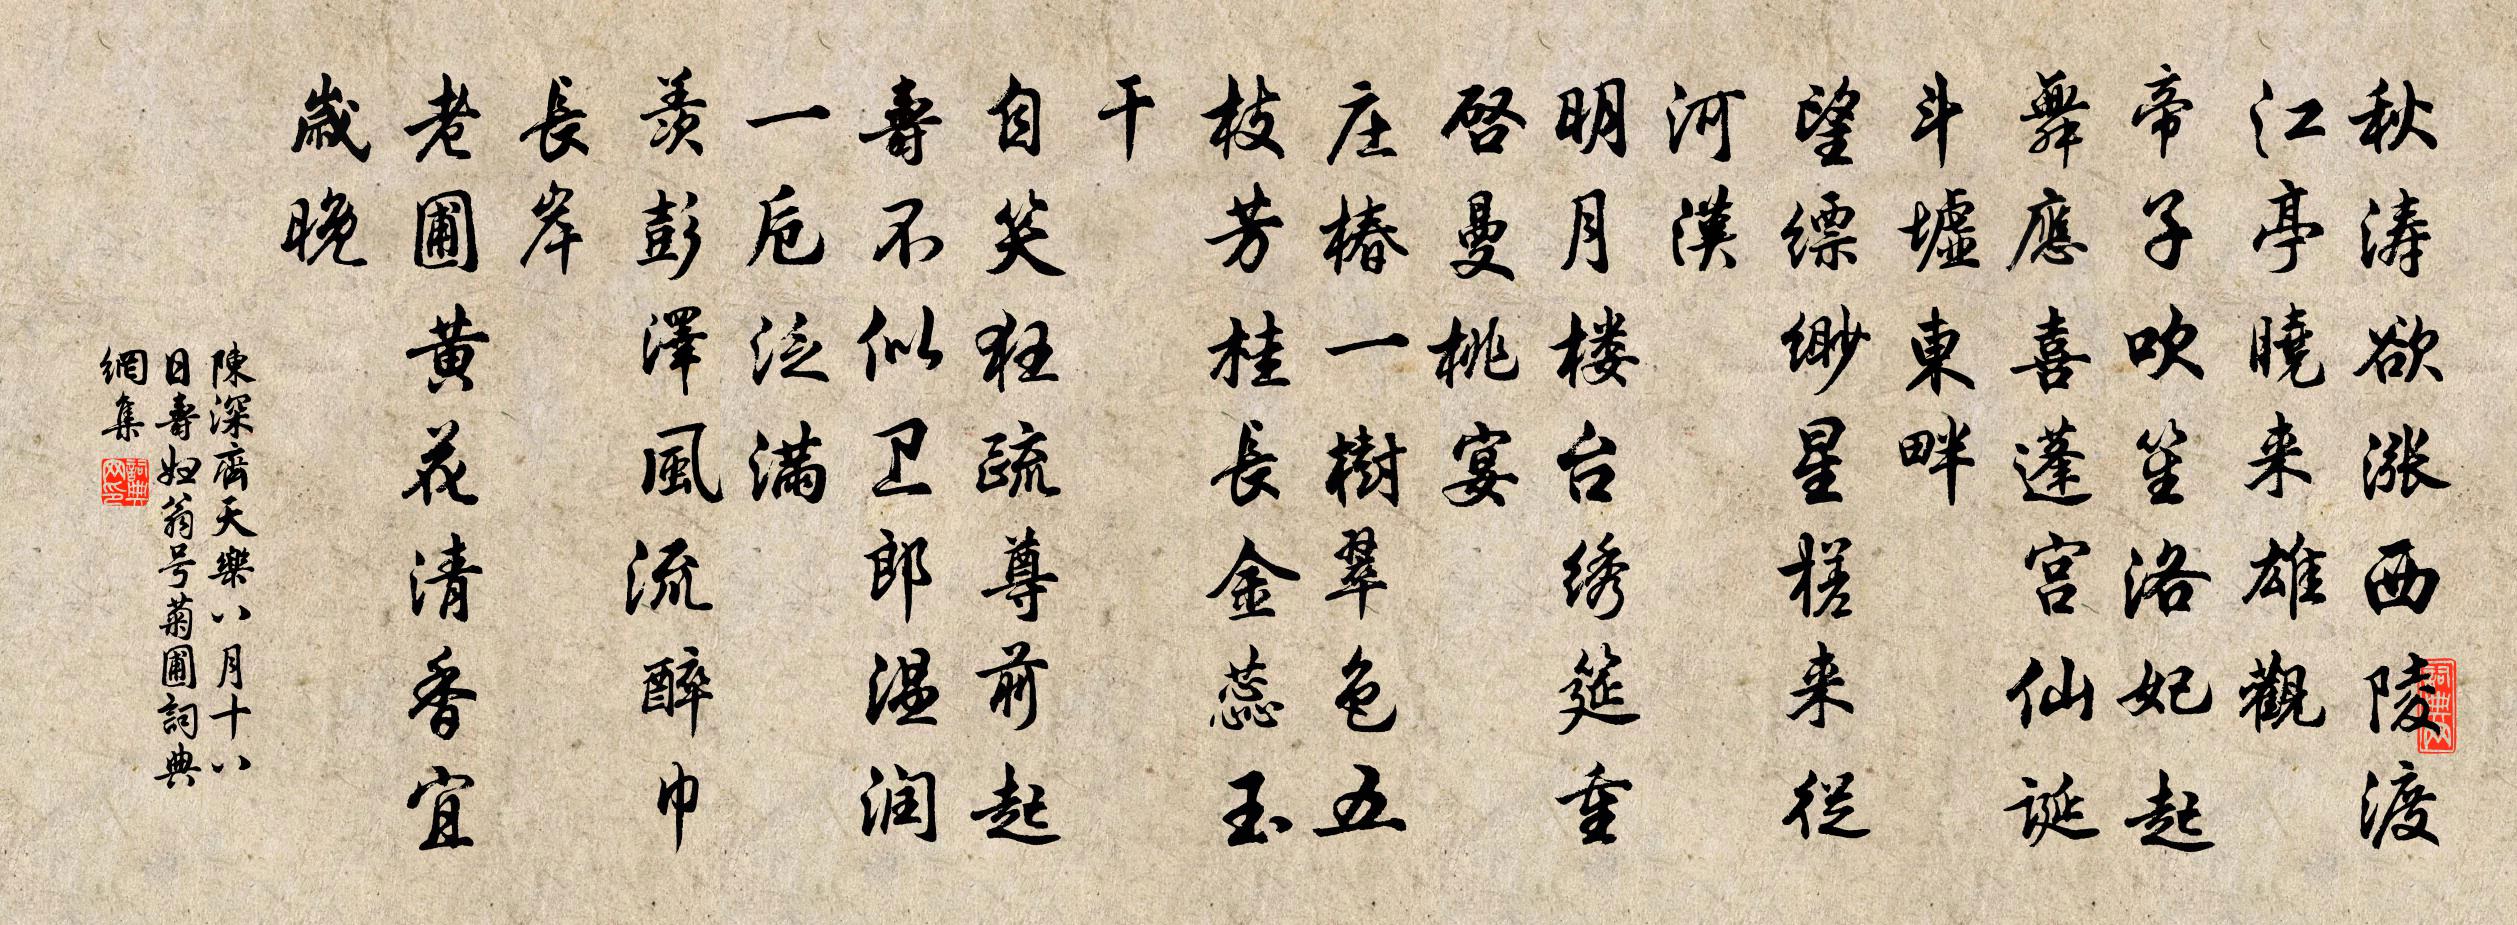 秋涛欲漲西陵渡
江亭曉来雄觀
帝子吹笙洛妃起
舞應喜蓬宫仙誕
斗墟東畔
望缥缈星槎来從
河漢
明月楼台绣筵重
啓曼桃宴
庄椿一樹翠色五
枝芳桂長金蕊玉
干
自笑狂疏尊前起
壽不似卫郎温润
一卮泛满
羨彭澤風流醉巾
長岸
老圃黄花清香宜
歲晚
陳深齊天樂八月十八
日壽妲翁号菊圃詞典
網集
詞典网印